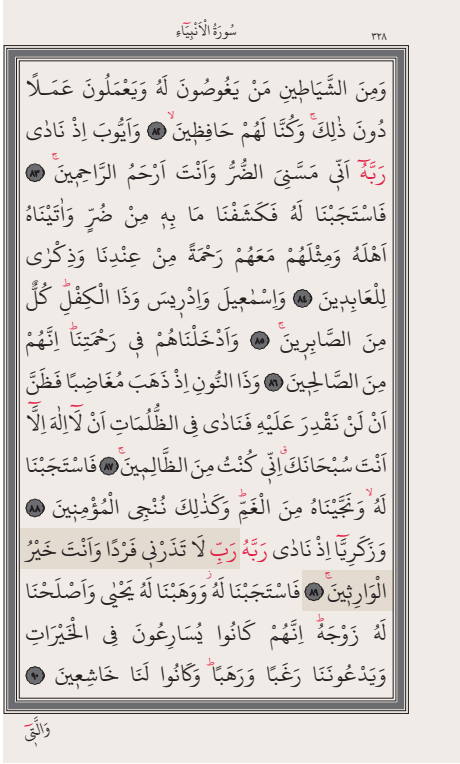 سُورَةُ الْاَنْبِيَٓاءِ
٣٢٨
وَمِنَ الشَّيَاطٖينِ مَنْ يَغُوصُونَ لَهُ وَيَعْمَلُونَ عَمَلًا
دُونَ ذٰلِكَۚ وَكُنَّا لَهُمْ حَافِظٖينَۙ ٨٢ وَاَيُّوبَ اِذْ نَادٰى
رَبَّهُٓ اَنّٖى مَسَّنِىَ الضُّرُّ وَاَنْتَ اَرْحَمُ الرَّاحِمٖينَۚ ٨٣
فَاسْتَجَبْنَا لَهُ فَكَشَفْنَا مَا بِهٖ مِنْ ضُرٍّ وَاٰتَيْنَاهُ
اَهْلَهُ وَمِثْلَهُمْ مَعَهُمْ رَحْمَةً مِنْ عِنْدِنَا وَذِكْرٰى
لِلْعَابِدٖينَ ٨٤ وَاِسْمٰعٖيلَ وَاِدْرٖيسَ وَذَا الْكِفْلِؕ كُلٌّ
مِنَ الصَّابِرٖينَۚ ٨٥ وَاَدْخَلْنَاهُمْ فٖى رَحْمَتِنَاؕ اِنَّهُمْ
مِنَ الصَّالِحٖينَ ٨٦ وَذَا النُّونِ اِذْ ذَهَبَ مُغَاضِبًا فَظَنَّ
اَنْ لَنْ نَقْدِرَ عَلَيْهِ فَنَادٰى فِى الظُّلُمَاتِ اَنْ لَٓا اِلٰهَ اِلَّٓا
اَنْتَ سُبْحَانَكَࣗ اِنّٖى كُنْتُ مِنَ الظَّالِمٖينَۚ ٨٧ فَاسْتَجَبْنَا
لَهُۙ وَنَجَّيْنَاهُ مِنَ الْغَمِّؕ وَكَذٰلِكَ نُنْجِى الْمُؤْمِنٖينَ ٨٨
وَزَكَرِيَّٓا اِذْ نَادٰى رَبَّهُ رَبِّ لَا تَذَرْنٖى فَرْدًا وَاَنْتَ خَيْرُ
الْوَارِثٖينَۚ ٨٩ فَاسْتَجَبْنَا لَهُؗ وَوَهَبْنَا لَهُ يَحْيٰى وَاَصْلَحْنَا
لَهُ زَوْجَهُؕ اِنَّهُمْ كَانُوا يُسَارِعُونَ فِى الْخَيْرَاتِ
وَيَدْعُونَنَا رَغَبًا وَرَهَبًاؕ وَكَانُوا لَنَا خَاشِعٖينَ ٩٠
وَالَّتٖٓى